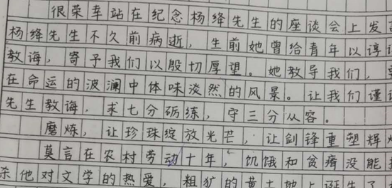 很荣幸站在纪念杨绛先生的座谈会上发
杨绛先生不久前病逝，生前她曾给青年以谆
教诲，寄予我们以殷切厚望。她教导我们，
在命运的波澜中体味淡然的风景。让我们谨
先生教诲，求七分砺练，守三分从容。
磨炼，让珍珠绽放光芒，让剑锋重塑辉
莫言在农村劳动十年，饥饿和贫瘠没能
杀他对文学的热爱，粗犷的黄土地上诞生了